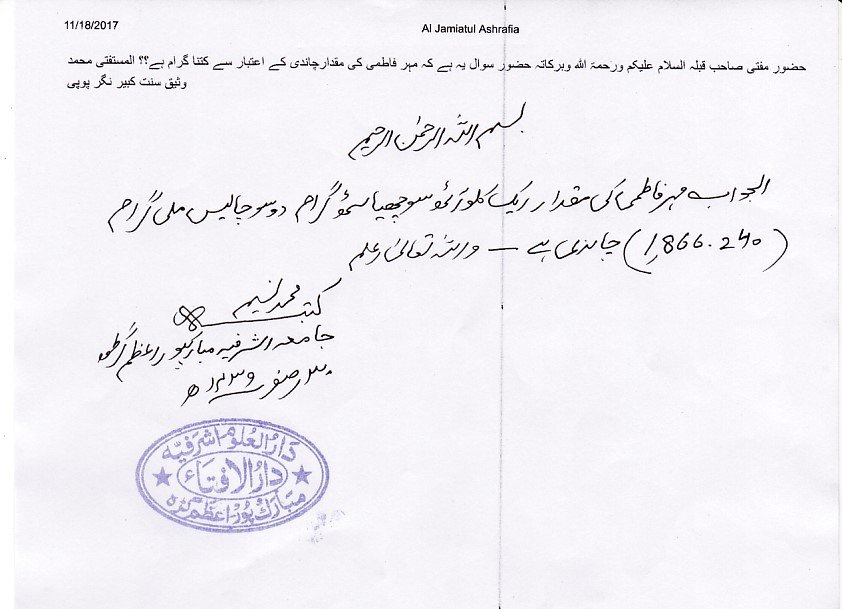 11/18/2017
Al Jamiatul Ashrafia
حضور مفتی صاحب قبلہ السلام علیکم ورحمۃ اللہ وبرکاتہ حضور سوال یہ ہے کہ مہر فاطمی کی مقدار چاندی کے اعتبار سے کتنا گرام ہے؟؟ المستفتی محمد
وثیق سنت کبیر نگر یوپی
بسم اللہ الرحمٰن الرحیم
الجواب مہر فاطمی کی مقدار ایک کلو آٹھ سو چھیاسٹھ گرام دو سو چالیس ملی گرام
(1,866.240) چاندی ہے – واللہ تعالیٰ اعلم
محمد نسیم
کتبہ
جامعہ اشرفیہ مبارکپور اعظم گڑھ
۳۰ صفر ۱۴۳۹ھ
دارالعلوم اشرفیہ
دارالافتاء
مبارک پور اعظم گڑہ